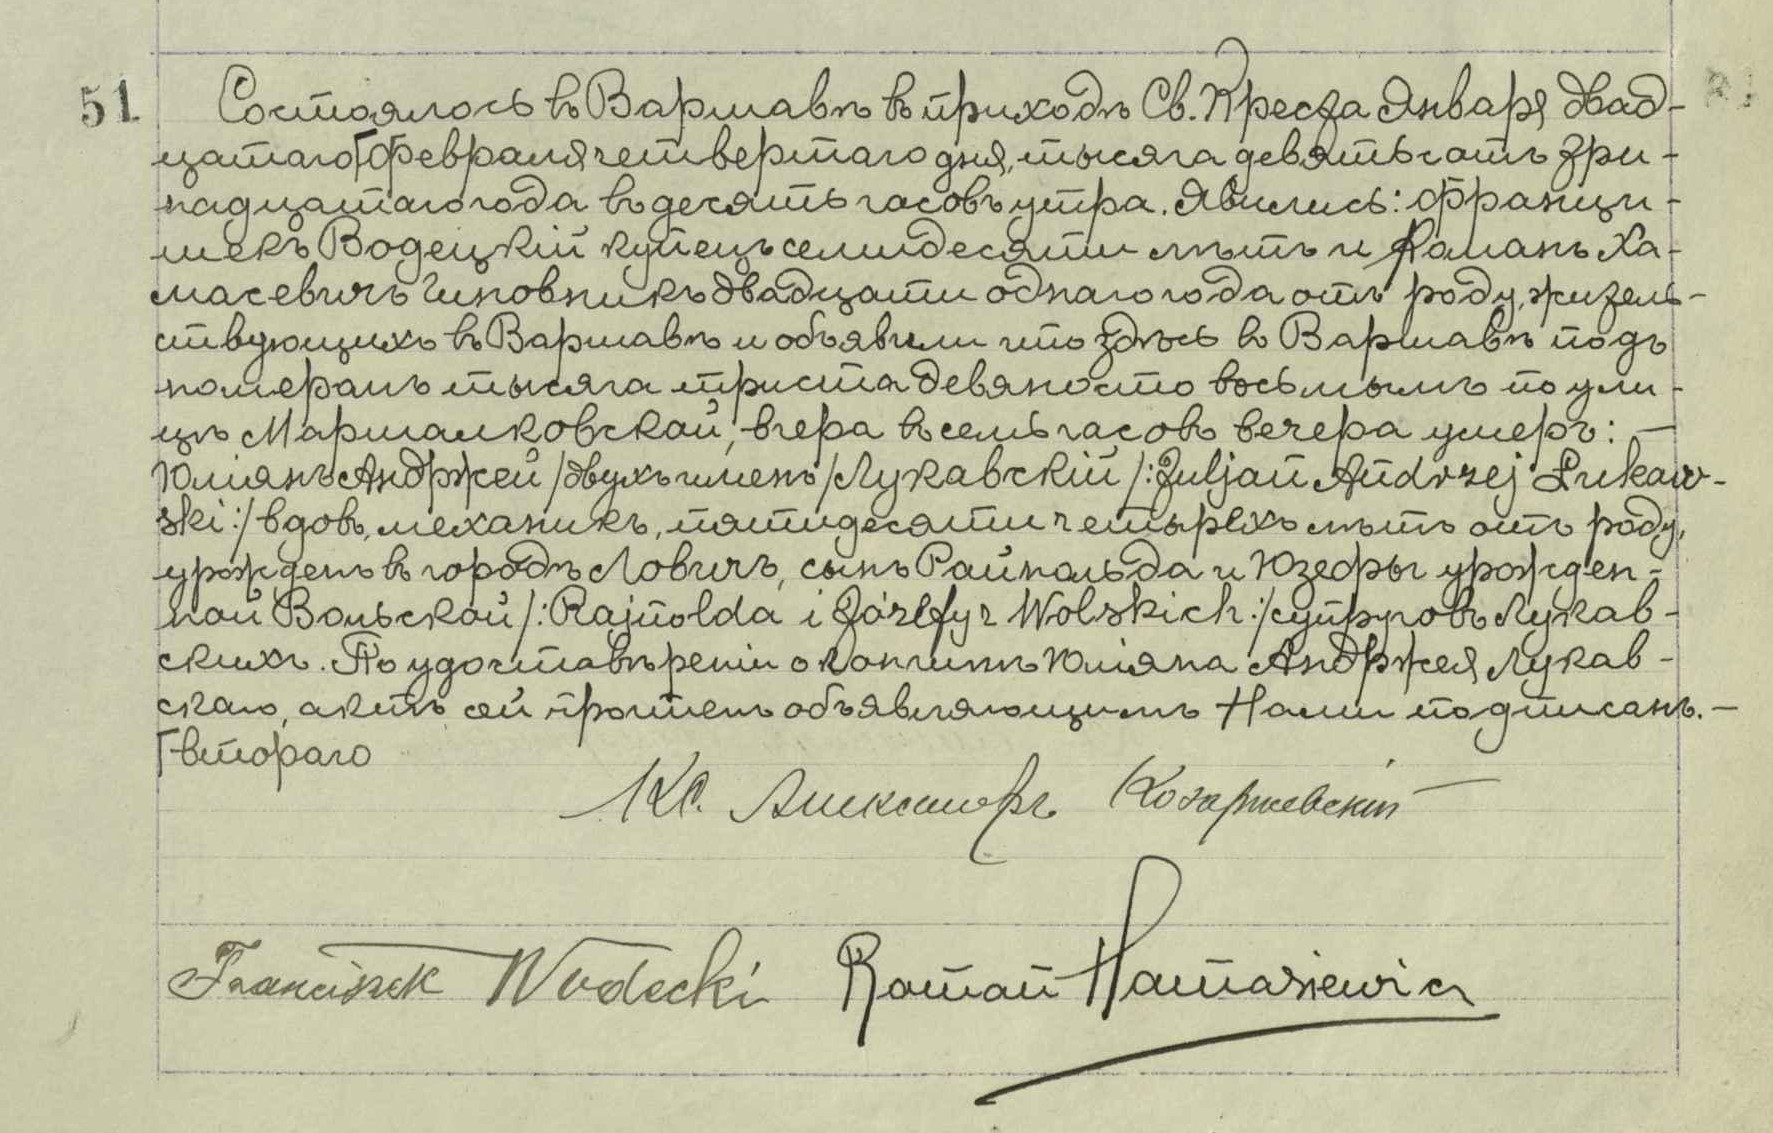 51
Состоялось въ Варшавѣ въ приходѣ Св. Креста Января двад-
цатаго Февраля четвертаго дня, тысяча девятьсотъ три-
надцатаго года въ десять часовъ утра. Явились: Франци-
шекъ Водецкій купецъ семидесяти лѣтъ и Романъ Ха-
масевичъ чиновникъ двадцати однаго года отъ роду, житель-
ствующихъ въ Варшавѣ и объявили что здѣсь въ Варшавѣ подъ
номерамъ тысяча триста девяносто восьмымъ по ули-
цѣ Маршалковской, вчера въ семь часовъ вечера умеръ: —
Юліянъ Анджей /двухъ именъ/ Лукавскій /: Juljan Andrzej Łukaw-
ski :/ вдов, механикъ, пятидесяти четырехъ лѣтъ отъ роду,
урожденъ въ городѣ Ловичъ, сынъ Райнольда и Юзефы урожден-
ной Вольской /: Rajnolda i Józefy z Wolskich :/ супруговъ Лукав-
скихъ. По удостовѣреніи о кончинѣ Юліяна Анджея Лукав-
скаго, актъ сей прочтенъ объявляющимъ Нами подписанъ. —
Г втораго
Кс. Александръ Козаржевскій
Franciszek Wodecki Roman Hamasiewicz